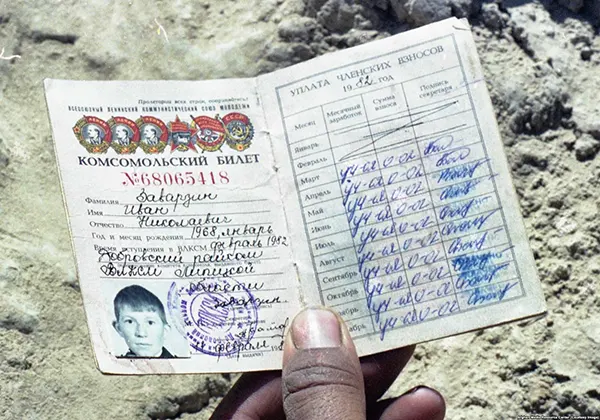 Пролетарии всех стран, соединяйтесь!
ВСЕСОЮЗНЫЙ ЛЕНИНСКИЙ КОММУНИСТИЧЕСКИЙ СОЮЗ МОЛОДЕЖИ
КОМСОМОЛЬСКИЙ БИЛЕТ
№68065418
Фамилия Заварзин
Имя Иван
Отчество Николаевич
Год и месяц рождения 1968, январь
Время вступления в ВЛКСМ февраль 1982
Добровский райком
ВЛКСМ Липецкой
области
Заварзин
февраль 198
УПЛАТА ЧЛЕНСКИХ ВЗНОСОВ
1982 ГОД
Месяц
Месячный заработок
Сумма взноса
Подпись секретаря
Январь
Февраль
Март уч-ся 0-02
Апрель уч-ся 0-02
Май уч-ся 0-02
Июнь уч-ся 0-02
Июль уч-ся 0-02
Август уч-ся 0-02
Сентябрь уч-ся 0-02
Октябрь уч-ся 0-02
Ноябрь уч-ся 0-02
Декабрь уч-ся 0-02